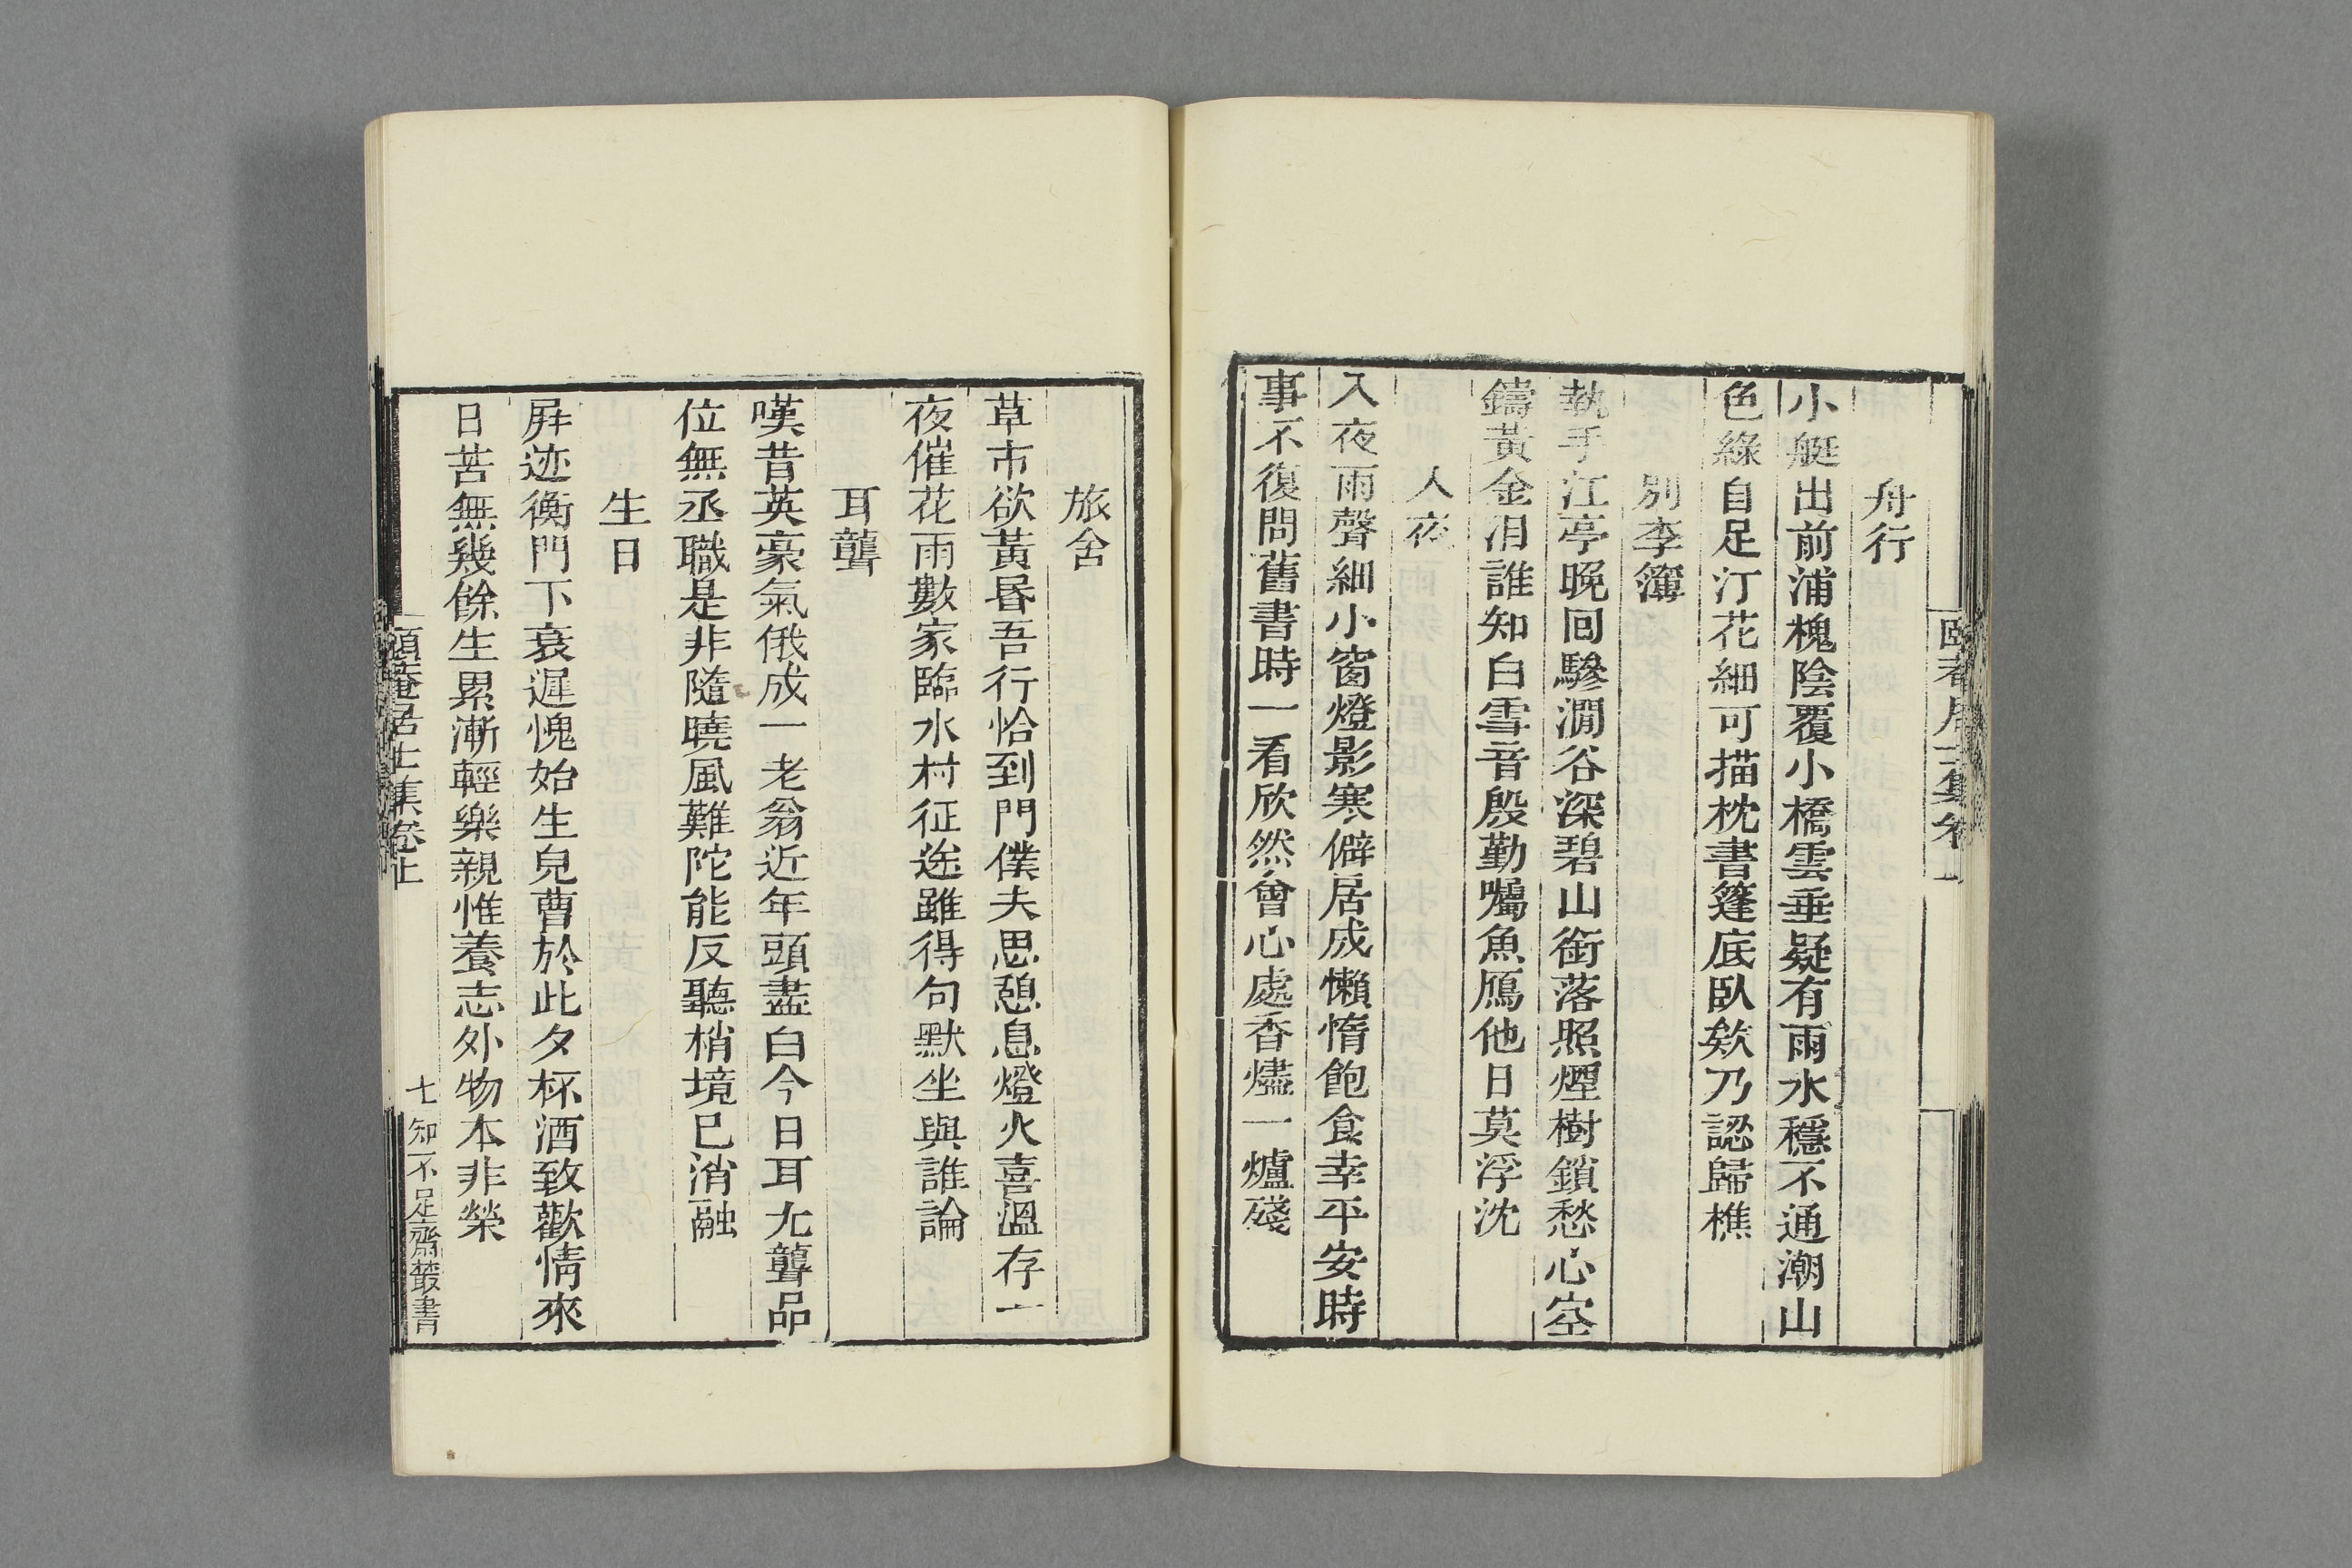 舟行
小艇出前浦槐陰覆小橋雲垂疑有雨水穩不通潮山
色綠自足汀花細可描枕書篷底臥欸乃認歸樵
別李簿
執手江亭晚回驂澗谷深碧山銜落照煙樹鎖愁心空
鑄黃金淚誰知白雪音殷勤囑魚鴈他日莫浮沈
入夜
入夜雨聲細小窗燈影寒僻居成懶惰飽食幸平安時
事不復問舊書時一看欣然會心處香燼一爐殘
旅舍
草市欲黃昏吾行恰到門僕夫思憩息燈火喜溫存一
夜催花雨數家臨水村征途雖得句默坐與誰論
耳聾
嘆昔英豪氣俄成一老翁近年頭盡白今日耳尢聾品
位無丞職是非隨曉風難陀能反聽梢境已消融
生日
屛迹衡門下衰遲愧始生兒曹於此夕杯酒致歡情來
日苦無幾餘生累漸輕樂親惟養志外物本非榮
頤菴居士集卷上
七
知不足齋叢書